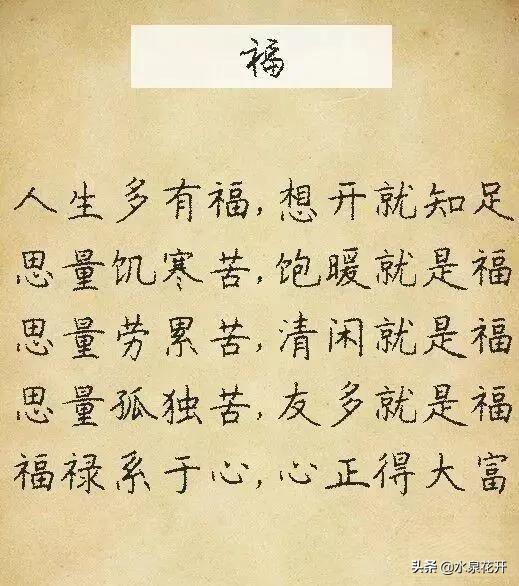 福
人生多有福,想开就知足
思量饥寒苦,饱暖就是福
思量劳累苦,清闲就是福
思量孤独苦,友多就是福
福禄系于心,心正得大富
头条 @水泉花开